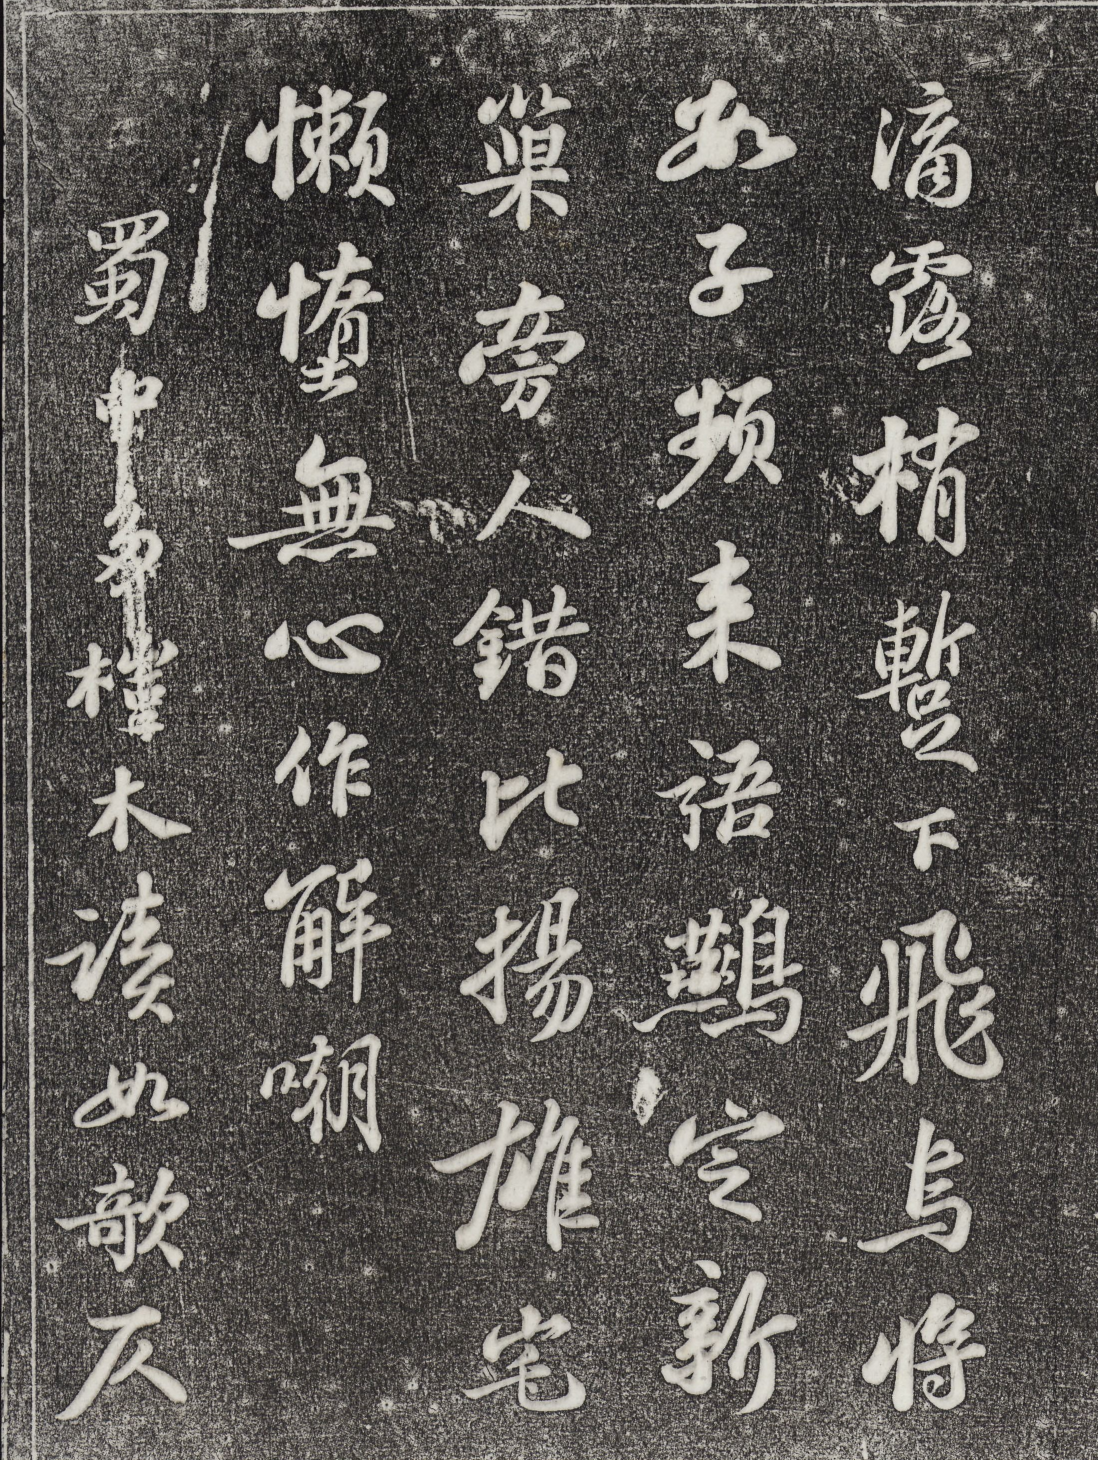 滴露梢暫下飛烏將
數子頻来語鷰定新
巢旁人錯比揚雄宅
懶惰無心作解嘲
蜀中多㮈木讀如欹仄